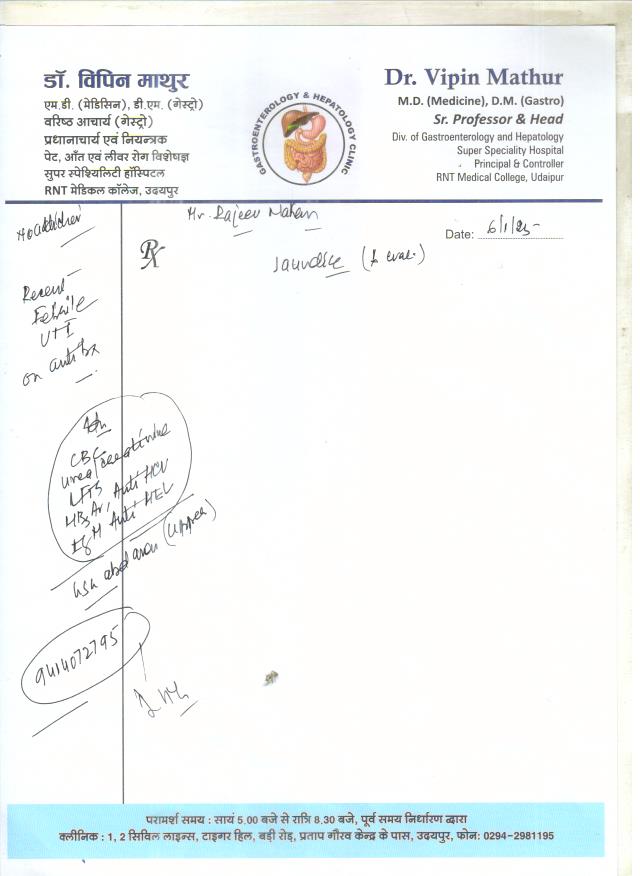 डॉ. विपिन माथुर
एम.डी. (मेडिसिन), डी.एम. (गेस्ट्रो)
वरिष्ठ आचार्य (गेस्ट्रो)
प्रधानाचार्य एवं नियन्त्रक
पेट, आँत एवं लीवर रोग विशेषज्ञ
सुपर स्पेश्यिलिटी हॉस्पिटल
RNT मेडिकल कॉलेज, उदयपुर
GASTROENTEROLOGY & HEPATOLOGY CLINIC
Dr. Vipin Mathur
M.D. (Medicine), D.M. (Gastro)
Sr. Professor & Head
Div. of Gastroenterology and Hepatology
Super Speciality Hospital
Principal & Controller
RNT Medical College, Udaipur
Mr. Rajeev
Date: 6/1/25
Rx
Jaundice (eval.)
Recent
Febrile
UTI
on
CBC
urea/creatinine
LFTs
HBsAg, Anti HCV
IgM Anti HEV
abdomen (upper)
9414072795
परामर्श समय : सायं 5.00 बजे से रात्रि 8.30 बजे, पूर्व समय निर्धारण द्वारा
क्लीनिक : 1, 2 सिविल लाइन्स, टाइगर हिल, बड़ी रोड़, प्रताप गौरव केन्द्र के पास, उदयपुर, फोन: 0294-2981195